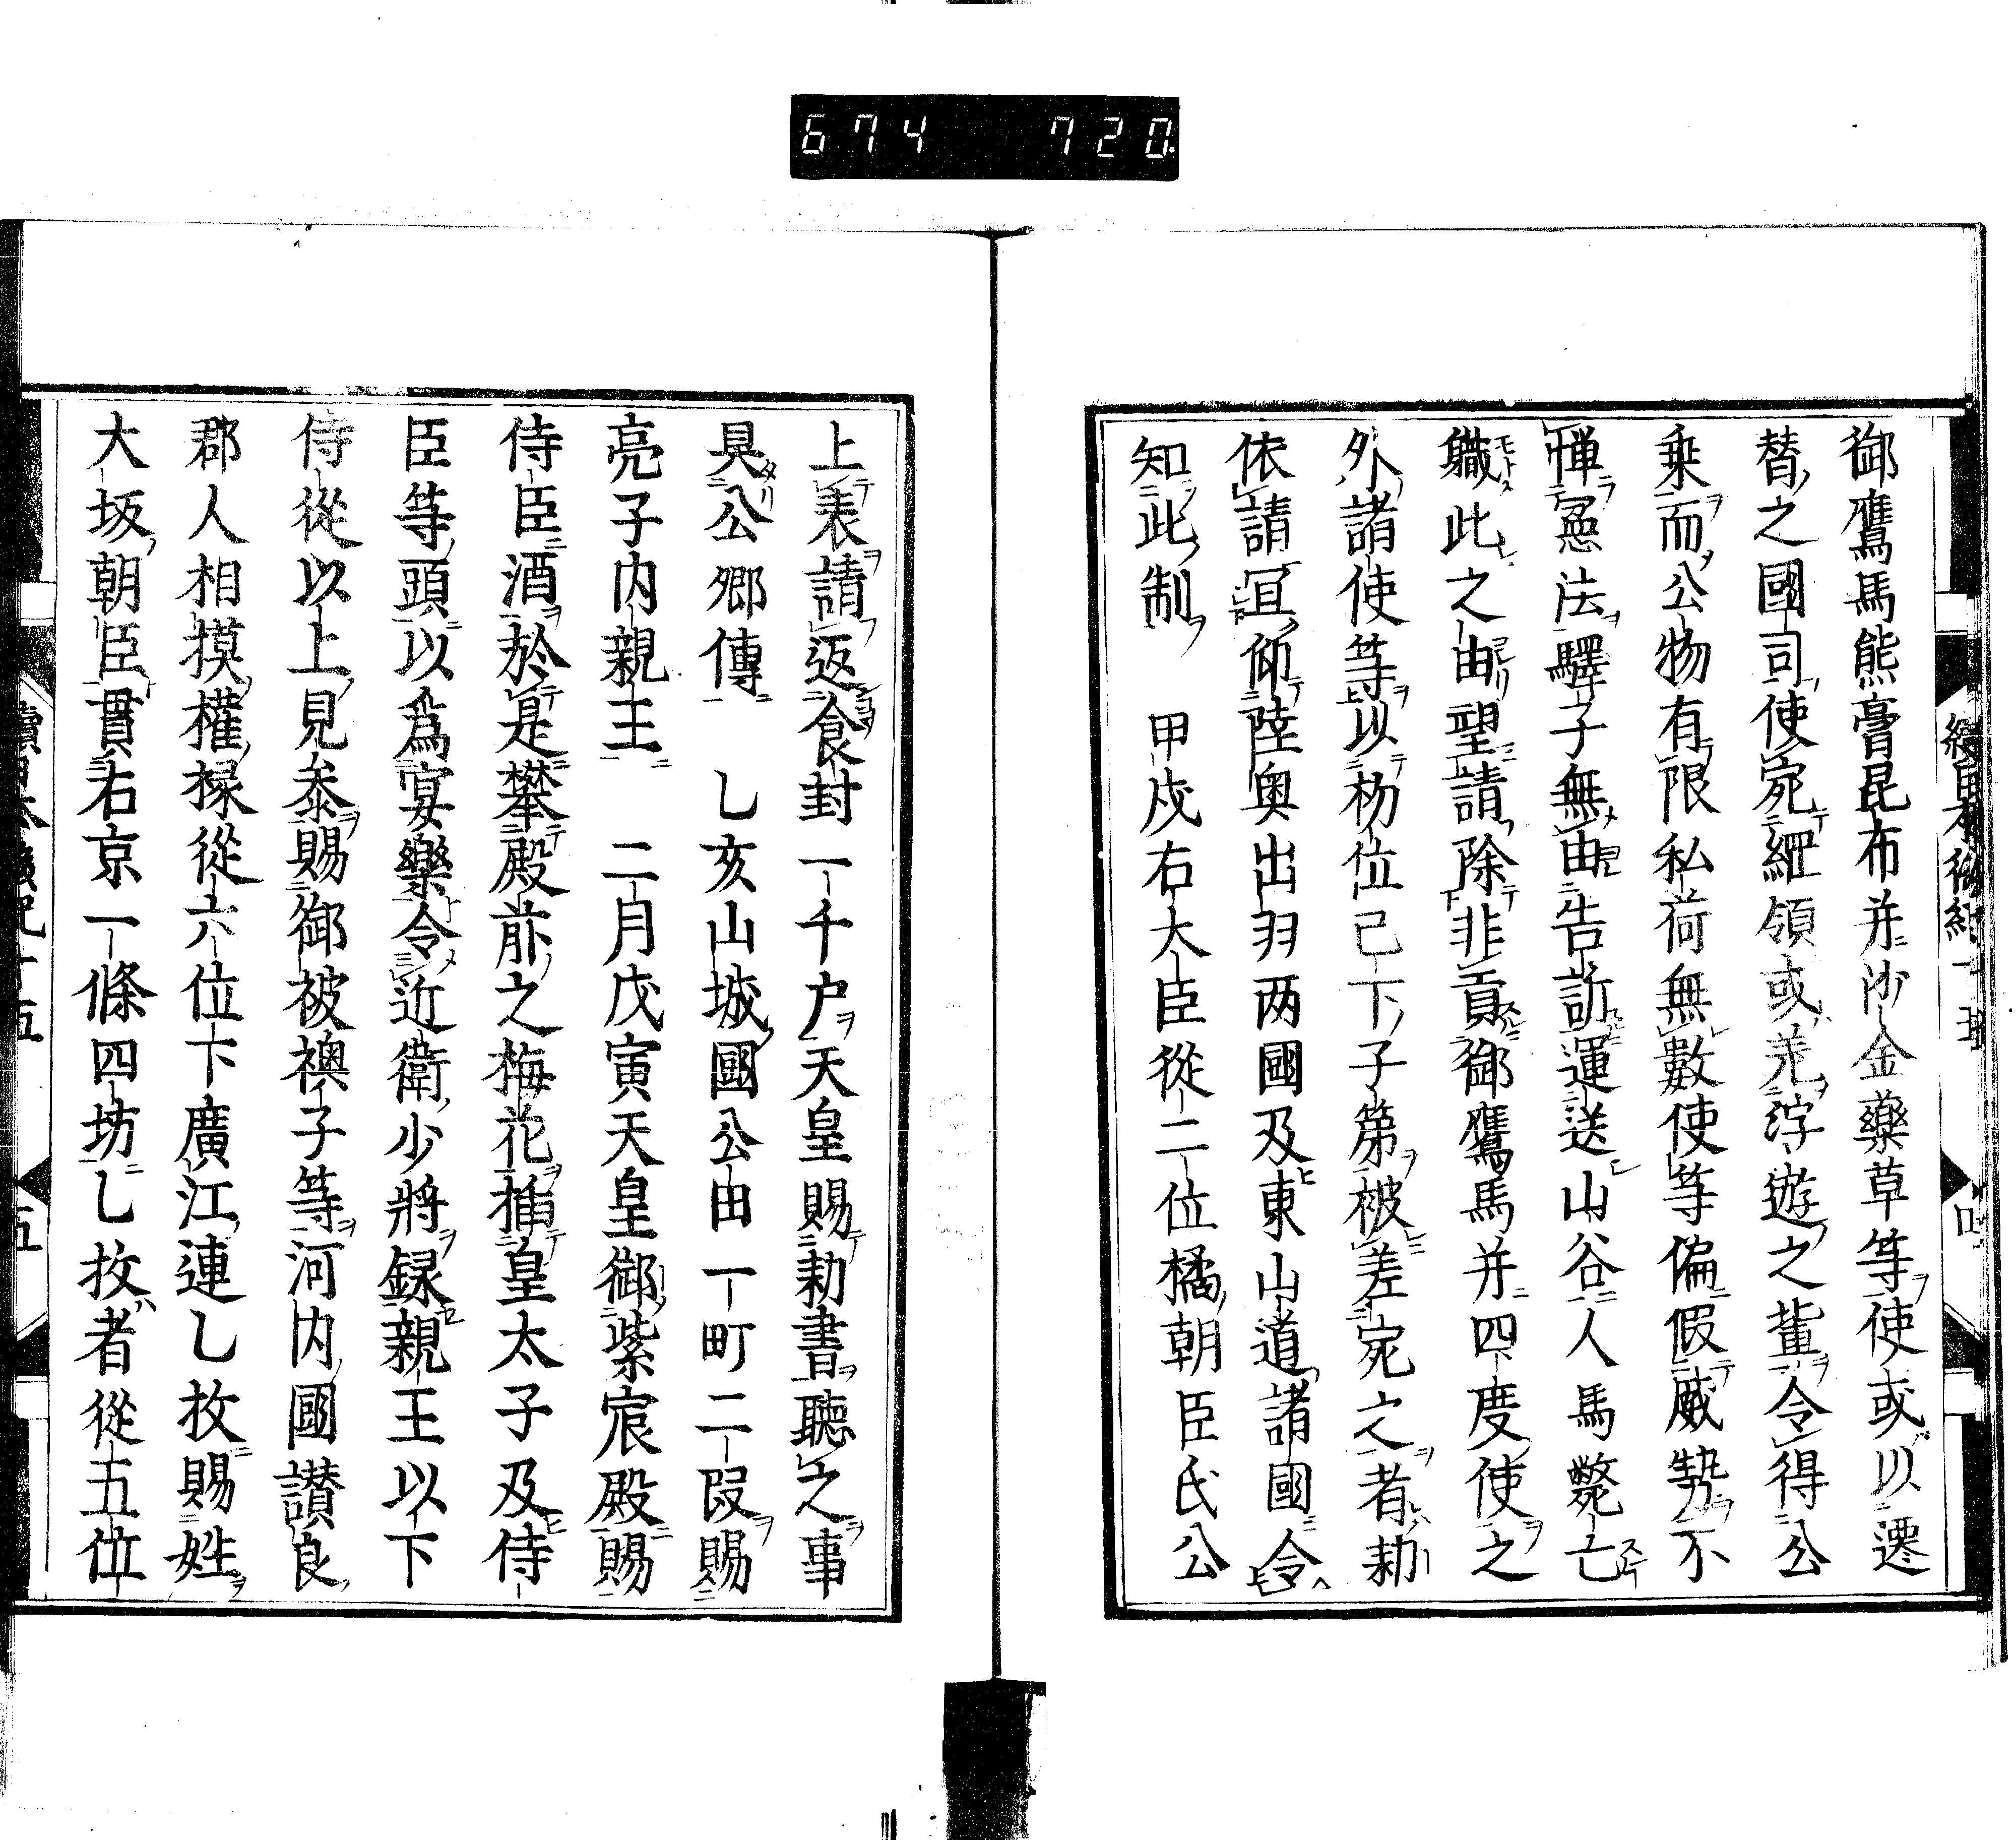 674 720
御鷹馬熊膏昆布并沙金藥草等使或以遷
替之國司使宛綱領或差浮遊之輩令得公
乘而公物有限私荷無數使等偏假威勢不
憚憲法驛子無由告訴運送山谷人馬斃亡
軄此之由望請除非貢御鷹馬并四度使之
外諸使等以初位已下子第被差宛之者勅
依請冝仰陸奥出羽两國及東山道諸國令
知此制 甲戌右大臣從二位橘朝臣氏公
上表請返食封一千户天皇賜勅書聽之事
具公卿傳 乙亥山城國公田一町二段賜
亮子内親王 二月戊寅天皇御紫宸殿賜
侍臣酒於是攀殿前之梅花挿皇太子及侍
臣等頭以爲宴樂令近衛少將録親王以下
侍從以上見叅賜御被襖子等河内國讃良
郡人相摸權掾從六位下廣江連乙枚賜姓
大坂朝臣貫右京一條四坊乙枚者從五位